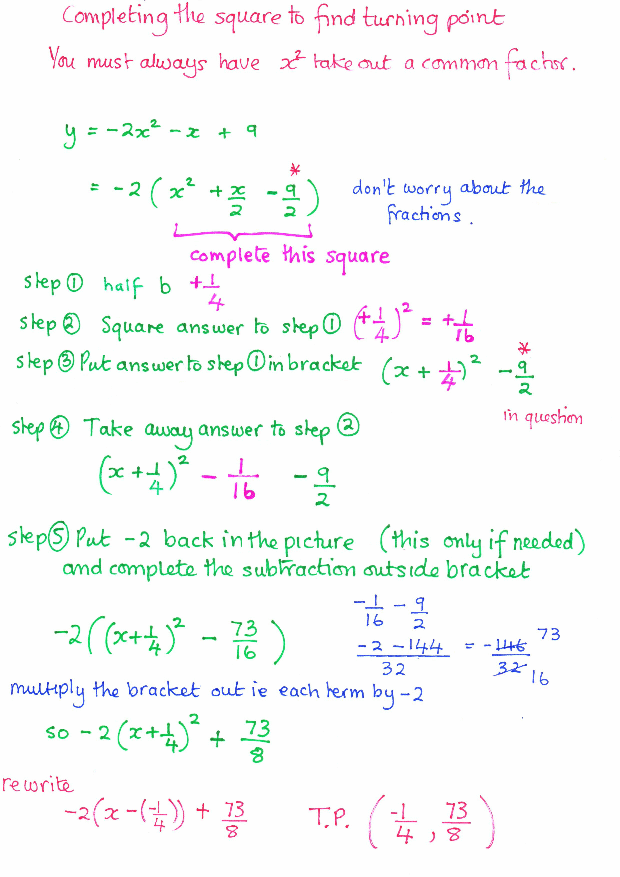 Completing the square to find turning point
You must always have x² take out a common factor.
y = -2x² - x + 9
= -2 ( x² + x/2 - 9/2 ) * don't worry about the
fractions.
complete this square
step ① half b + 1/4
step ② Square answer to step ① (+1/4)² = +1/16
step ③ Put answer to step ① in bracket (x + 1/4)² - 9/2 *
in question
step ④ Take away answer to step ②
(x + 1/4)² - 1/16 - 9/2
step ⑤ Put -2 back in the picture (this only if needed)
and complete the subtraction outside bracket
-1/16 - 9/2
-2((x+1/4)² - 73/16) (-2 - 144)/32 = -146/32 73 16
multiply the bracket out ie each term by -2
so -2(x+1/4)² + 73/8
rewrite
-2(x-(-1/4)) + 73/8 T.P. (-1/4, 73/8)